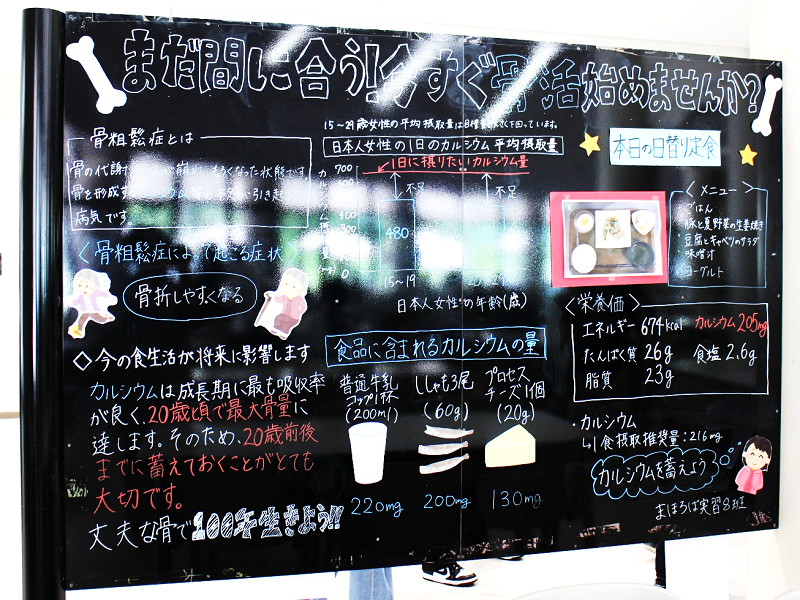 まだ間に合う!今すぐ骨活始めませんか?
骨粗鬆症とは
骨の代謝
骨を形成す
病気です。
〈骨粗鬆症によって起こる症状〉
骨折しやすくなる
◇今の食生活が将来に影響します
カルシウムは成長期に最も吸収率
が良く、20歳頃で最大骨量に
達します。そのため、20歳前後
までに蓄えておくことがとても
大切です。
丈夫な骨で100年生きよう!!
15～29歳女性の平均摂取量は目標量
下回っています。
日本人女性の1日のカルシウム平均摂取量
1日に摂りたいカルシウム量
700
600
400
0
不足
不足
480
15～19
日本人女性の年齢(歳)
食品に含まれるカルシウムの量
普通牛乳
コップ1杯
(200ml)
220mg
ししゃも3尾
(60g)
200mg
プロセス
チーズ1個
(20g)
130mg
本日の日替り定食
〈メニュー〉
ごはん
豚と夏野菜の生姜焼き
豆腐とキャベツのサラダ
味噌汁
ヨーグルト
〈栄養価〉
エネルギー 674kcal カルシウム 205mg
たんぱく質 26g 食塩 2.6g
脂質 23g
・カルシウム
↳1食摂取推奨量:216mg
カルシウムを蓄えよう
まほろば実習8班